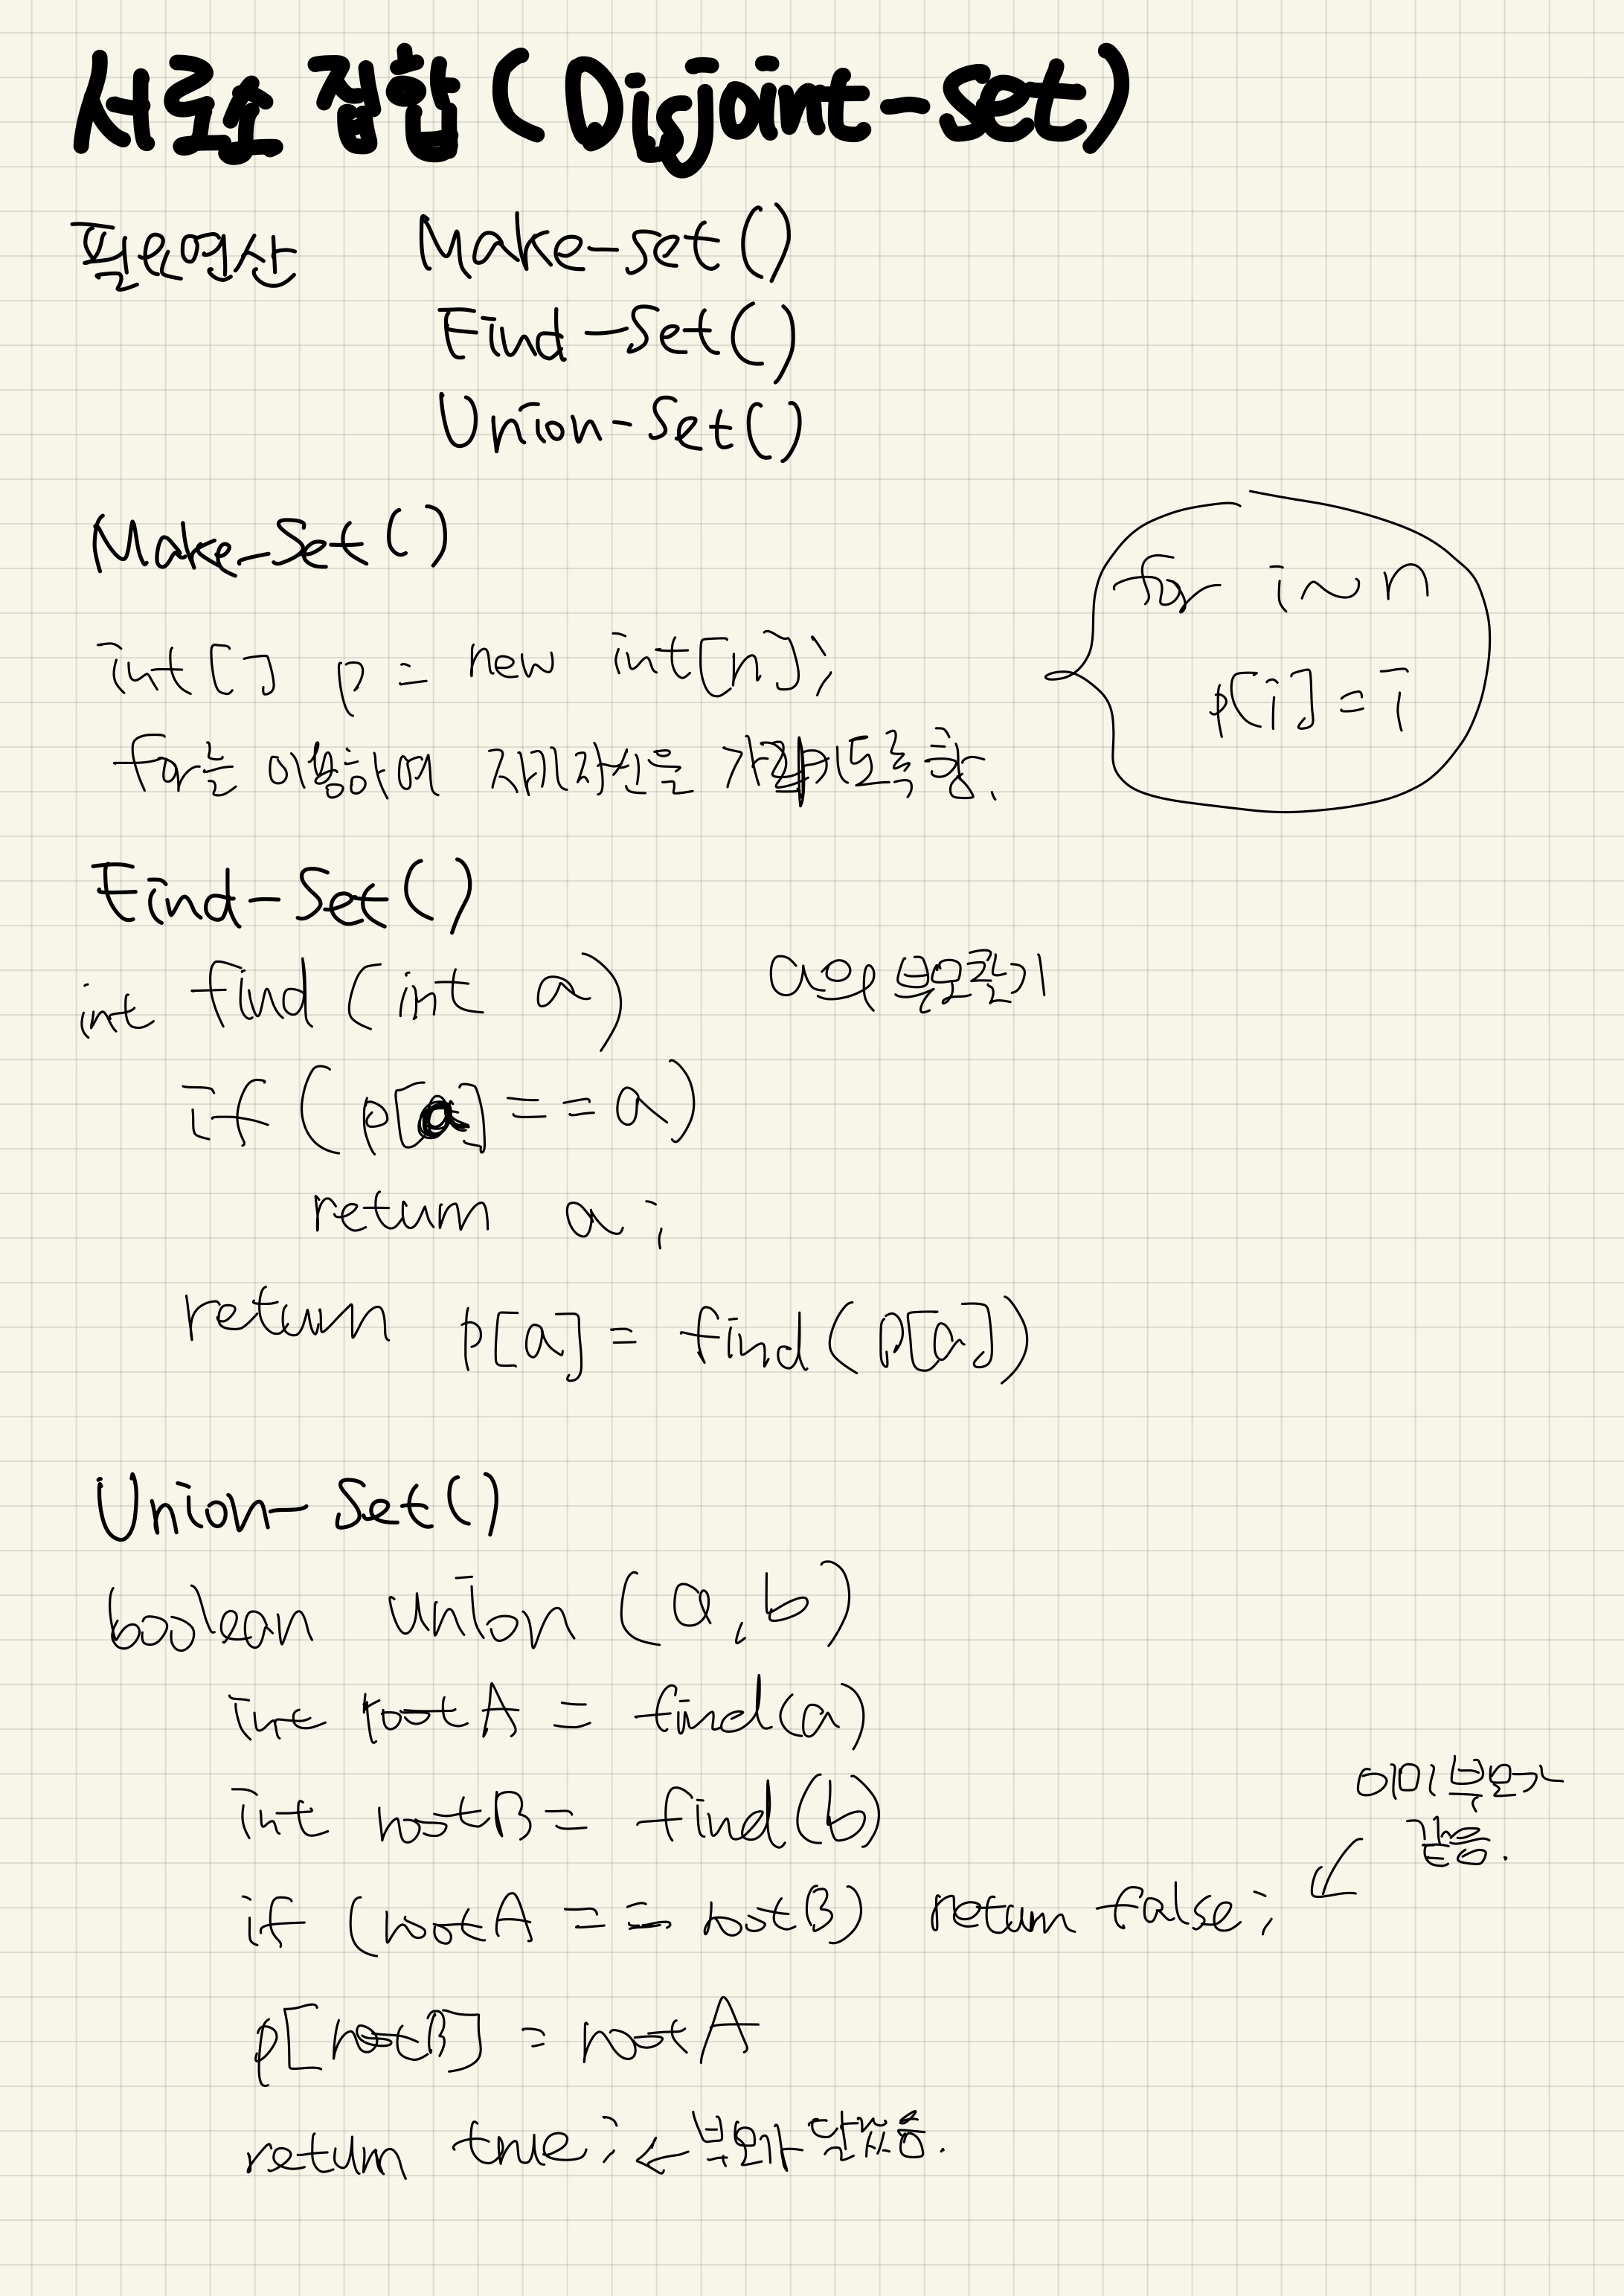 서로소 집합 (Disjoint-set)
필요연산 Make-set()
Find-Set()
Union-Set()
Make-Set()
int[] p = new int[n];
for는 이용하여 자기자신을 가리키도록 함.
for i~n
p[i] = i
Find-Set()
int find(int a) a의 부모찾기
if (p[a] == a)
return a;
return p[a] = find(p[a])
Union-Set()
boolean union (a,b)
int rootA = find(a)
int rootB = find(b)
이미 부모가
같음.
if (rootA == rootB) return false;
p[rootB] = rootA
return true; ← 부모가